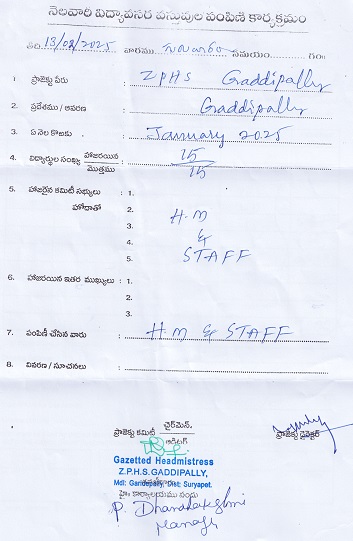 నెలవారి విద్యావసర వస్తువుల పంపిణి కార్యక్రమం
తేది. 13/02/2025 వారము సమయం గం॥
1. ప్రాజెక్టు పేరు : ZPHS Gaddipally
2. ప్రదేశము / ఆవరణ : Gaddipally
3. ఏ నెల కొఱకు : January 2025
4. విద్యార్థుల సంఖ్య హాజరయిన 15
మొత్తము 15
5. హాజరైన కమిటీ సభ్యులు : 1.
హోదాతో 2.
3. H.M
4. &
5. STAFF
6. హాజరయిన ఇతర ముఖ్యులు : 1.
2.
3.
7. పంపిణీ చేసిన వారు : H.M & STAFF
8. వివరణ / సూచనలు :
ప్రాజెక్టు కమిటీ చైర్‌మెన్. ప్రాజెక్టు డైరెక్టర్
ఆడిటర్
Gazetted Headmistress
Z.P.H.S.GADDIPALLY,
Mdl: Garidepally, Dist: Suryapet.
P. Dhanalakshmi